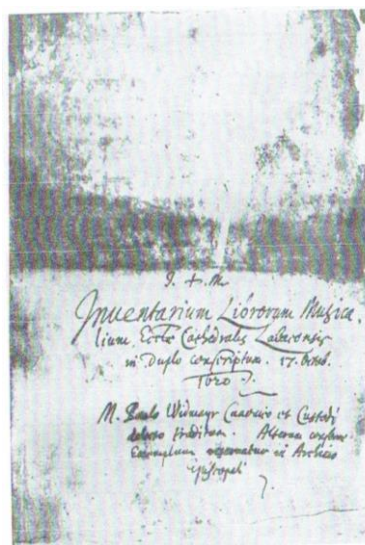 J. + M.
Inventarium Librorum Musica
lium Eccle Cathedralis Labacensis
in Duplo conscriptum. 17. Octob.
1620
M. Paulo Widmayr Canonico et Custodi
traditum. Alterum
Exemplum in Archivo